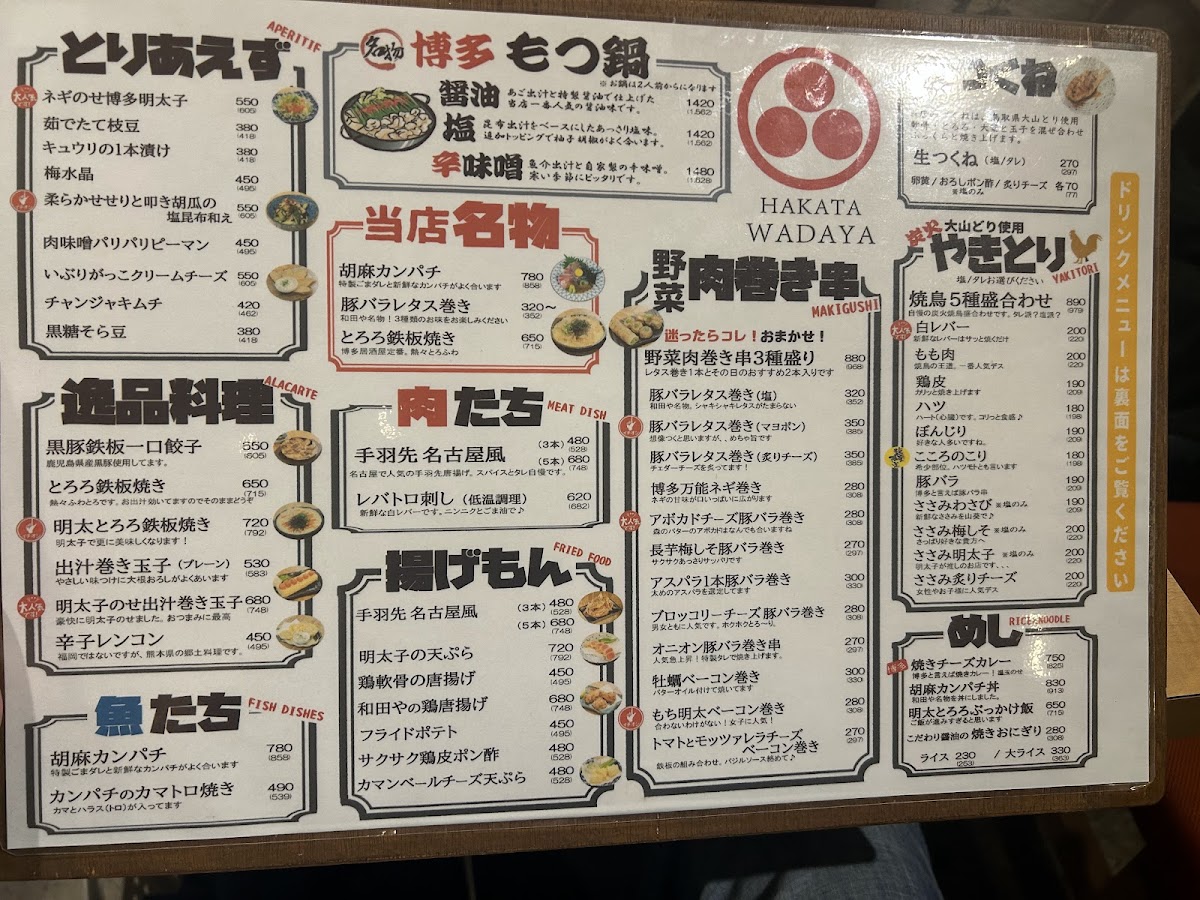 とりあえず
APERITIF
大人気
ネギのせ博多明太子 550
(605)
茹でたて枝豆 380
(418)
キュウリの1本漬け 380
(418)
梅水晶 450
(495)
柔らかせせりと叩き胡瓜の
塩昆布和え 550
(605)
肉味噌パリパリピーマン 450
(495)
いぶりがっこクリームチーズ 550
(605)
チャンジャキムチ 420
(462)
黒糖そら豆 380
(418)
逸品料理
ALACARTE
黒豚鉄板一口餃子 550
鹿児島県産黒豚使用してます。 (605)
とろろ鉄板焼き 650
熱々ふわとろです。お出汁効いてますのでそのままどうぞ (715)
明太とろろ鉄板焼き 720
明太子で更に美味しくなります! (792)
出汁巻き玉子 (プレーン) 530
やさしい味つけに大根おろしがよくあいます (583)
大人気
明太子のせ出汁巻き玉子 680
豪快に明太子のせました。おつまみに最高 (748)
辛子レンコン 450
福岡ではないですが、熊本県の郷土料理です。 (495)
魚たち
FISH DISHES
胡麻カンパチ 780
特製ごまダレと新鮮なカンパチがよく合います (858)
カンパチのカマトロ焼き 490
カマとハラス(トロ)が入ってます (539)
名物
博多もつ鍋
※お鍋は2人前からになります
醤油 あご出汁と特製醤油で仕上げた
当店一番人気の醤油味です。 1420
(1.562)
塩 昆布出汁をベースにしたあっさり塩味。
追加トッピングで柚子胡椒がよく合います。 1420
(1.562)
辛味噌 魚介出汁と自家製の辛味噌。
寒い季節にピッタリです。 1480
(1.628)
当店名物
胡麻カンパチ 780
特製ごまダレと新鮮なカンパチがよく合います (858)
豚バラレタス巻き 320〜
和田や名物!3種類のお味をお楽しみください (352)
とろろ鉄板焼き 650
博多居酒屋定番。熱々とろふわ (715)
肉たち
MEAT DISH
手羽先 名古屋風 (3本) 480
(528)
(5本) 680
(748)
名古屋で人気の手羽先唐揚げ。スパイスとタレ自慢です。
レバトロ刺し (低温調理) 620
新鮮な白レバーです。ニンニクとごま油で♪ (682)
揚げもん
FRIED FOOD
手羽先 名古屋風 (3本) 480
(528)
(5本) 680
(748)
明太子の天ぷら 720
(792)
鶏軟骨の唐揚げ 450
(495)
和田やの鶏唐揚げ 680
(748)
フライドポテト 450
(495)
サクサク鶏皮ポン酢 480
(528)
カマンベールチーズ天ぷら 480
(528)
HAKATA
WADAYA
野菜肉巻き串
MAKIGUSHI
迷ったらコレ!おまかせ!
野菜肉巻き串3種盛り 880
レタス巻き1本とその日のおすすめ2本入りです (968)
豚バラレタス巻き(塩) 320
和田や名物。シャキシャキレタスがたまらない (352)
豚バラレタス巻き(マヨポン) 350
想像つくと思いますが、、めちゃ旨です (385)
豚バラレタス巻き(炙りチーズ) 350
チェダーチーズを炙ってます! (385)
博多万能ネギ巻き 280
ネギの甘味が口いっぱいに広がります (308)
大人気
アボカドチーズ豚バラ巻き 280
森のバターのアボカドはなんでも合いますね (308)
長芋梅しそ豚バラ巻き 270
サクサクあっさりサッパリです (297)
アスパラ1本豚バラ巻き 300
太めのアスパラを選定してます (330)
ブロッコリーチーズ豚バラ巻き 280
男女ともに人気です。ホクホクとろ〜り。 (308)
オニオン豚バラ巻き串 270
人気急上昇!特製タレで焼き上げます。 (297)
牡蠣ベーコン巻き 300
バターオイル付けて焼いてます (330)
もち明太ベーコン巻き 280
合わないわけがない!女子に人気! (308)
トマトとモッツァレラチーズ
ベーコン巻き 270
(297)
鉄板の組み合わせ、バジルソース絡めて♪
つくね
は、鳥取県大山とり使用
を混ぜ合わせ
と焼き上げます。
生つくね (塩/タレ) 270
(297)
卵黄/おろしポン酢/炙りチーズ 各70
※塩のみ (77)
炭火 大山どり使用
やきとり
塩/タレお選びください
YAKITORI
焼鳥5種盛合わせ 890
自慢の炭火焼鳥盛合わせです。タレ派?塩派? (979)
大人気
白レバー 200
新鮮なレバーはサッと焼くだけ (220)
もも肉 200
焼鳥の王道。一番人気デス (220)
鶏皮 190
ガリッと焼き上げます (209)
ハツ 180
ハート(心臓)です、コリっと食感♪ (198)
ぼんじり 190
好きな人多いですね。 (209)
こころのこり 180
希少部位。ハツモトとも言います (198)
豚バラ 190
博多と言えば豚バラ串 (209)
ささみわさび ※塩のみ 190
新鮮なささみを山葵で♪ (209)
ささみ梅しそ ※塩のみ 200
さっぱり好きな貴方へ (220)
ささみ明太子 ※塩のみ 200
明太子が推しのお店です、、、 (220)
ささみ炙りチーズ 200
女性やお子様に人気デス (220)
めし
RICE&NOODLE
博多
焼きチーズカレー 750
博多と言えば焼きカレー!温玉のせ (825)
胡麻カンパチ丼 830
和田や名物を丼にしました。 (913)
明太とろろぶっかけ飯 650
ご飯が進みすぎると思います (715)
こだわり醤油の 焼きおにぎり 280
(308)
ライス 230 / 大ライス 330
(253) (363)
ドリンクメニューは裏面をご覧ください